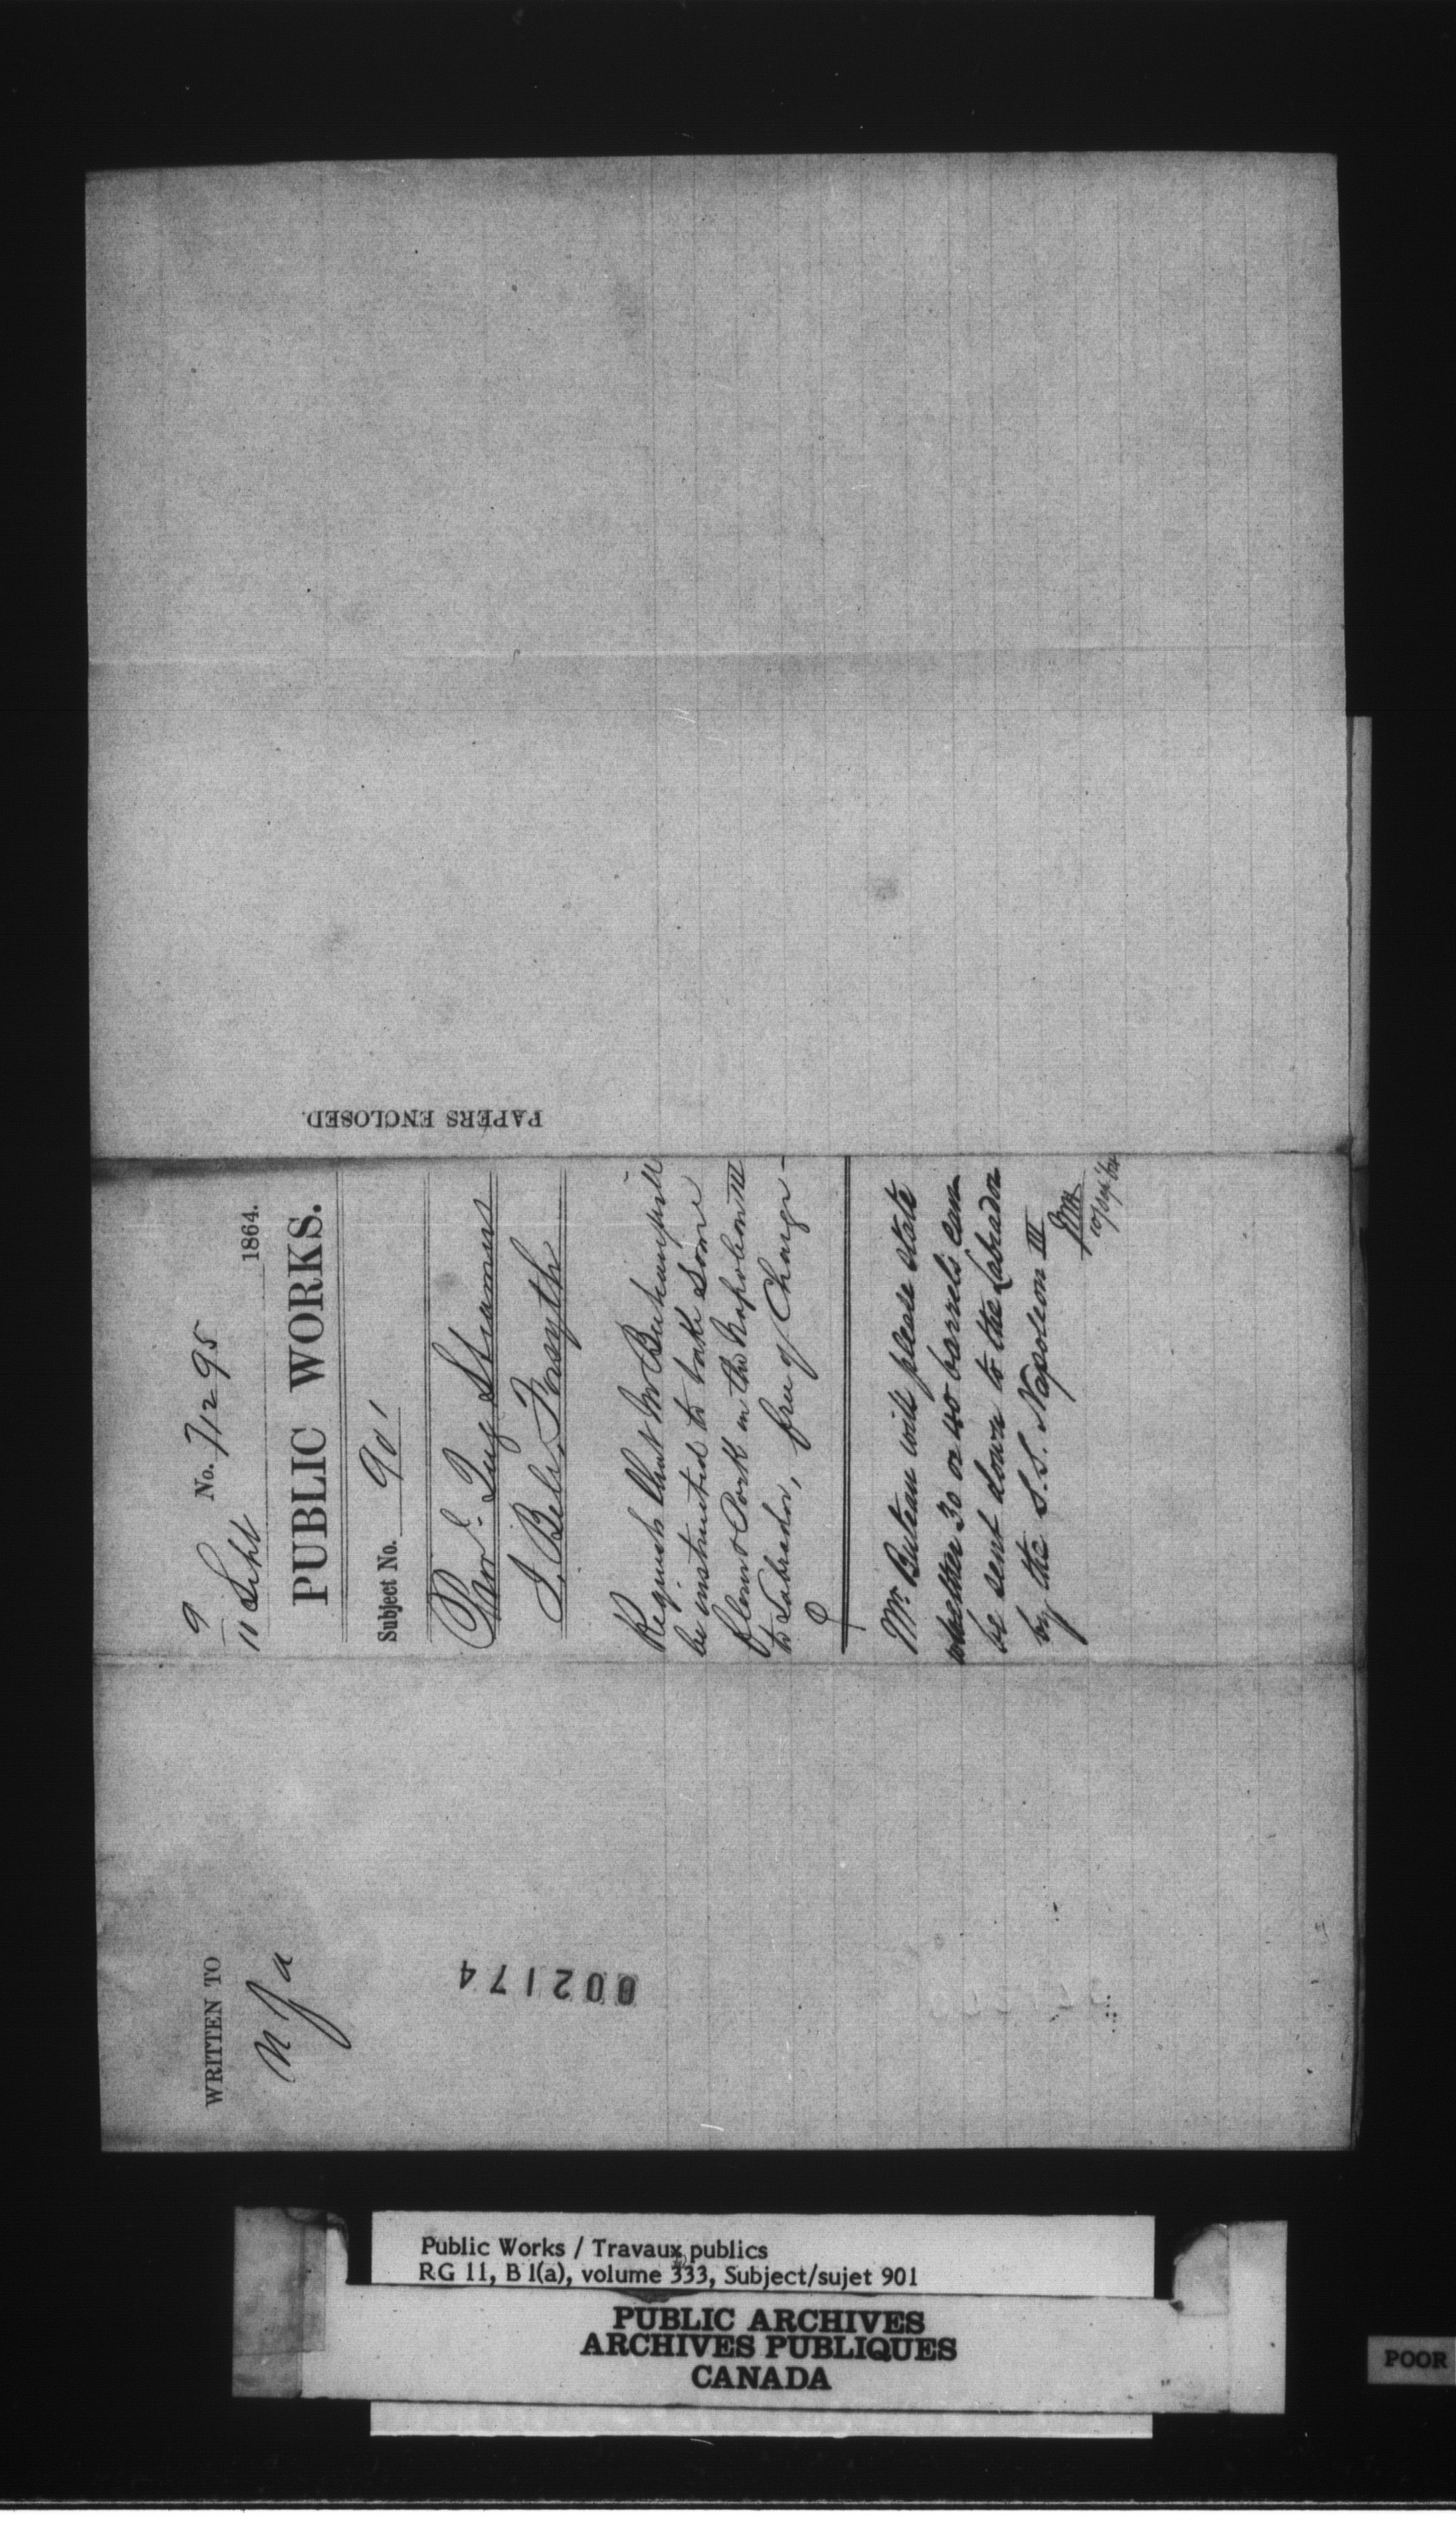 9
11 Sept
No. 71295
1864.
PUBLIC WORKS.
Subject No. 901
Prov.l Tug Steamers
J. Bell Forsyth
Requests that Mr
be instructed to take some
flour & Pork in the Napoleon III
to Labrador, free of Charge -
Mr. Buteau will please state
whether 30 or 40 barrels can
be sent down to the Labrador
by the S.S. Napoleon III
10 Sept 64
PAPERS ENCLOSED.
WRITTEN TO
002174
Public Works / Travaux publics
RG 11, B 1(a), volume 333, Subject/sujet 901
PUBLIC ARCHIVES
ARCHIVES PUBLIQUES
CANADA
POOR